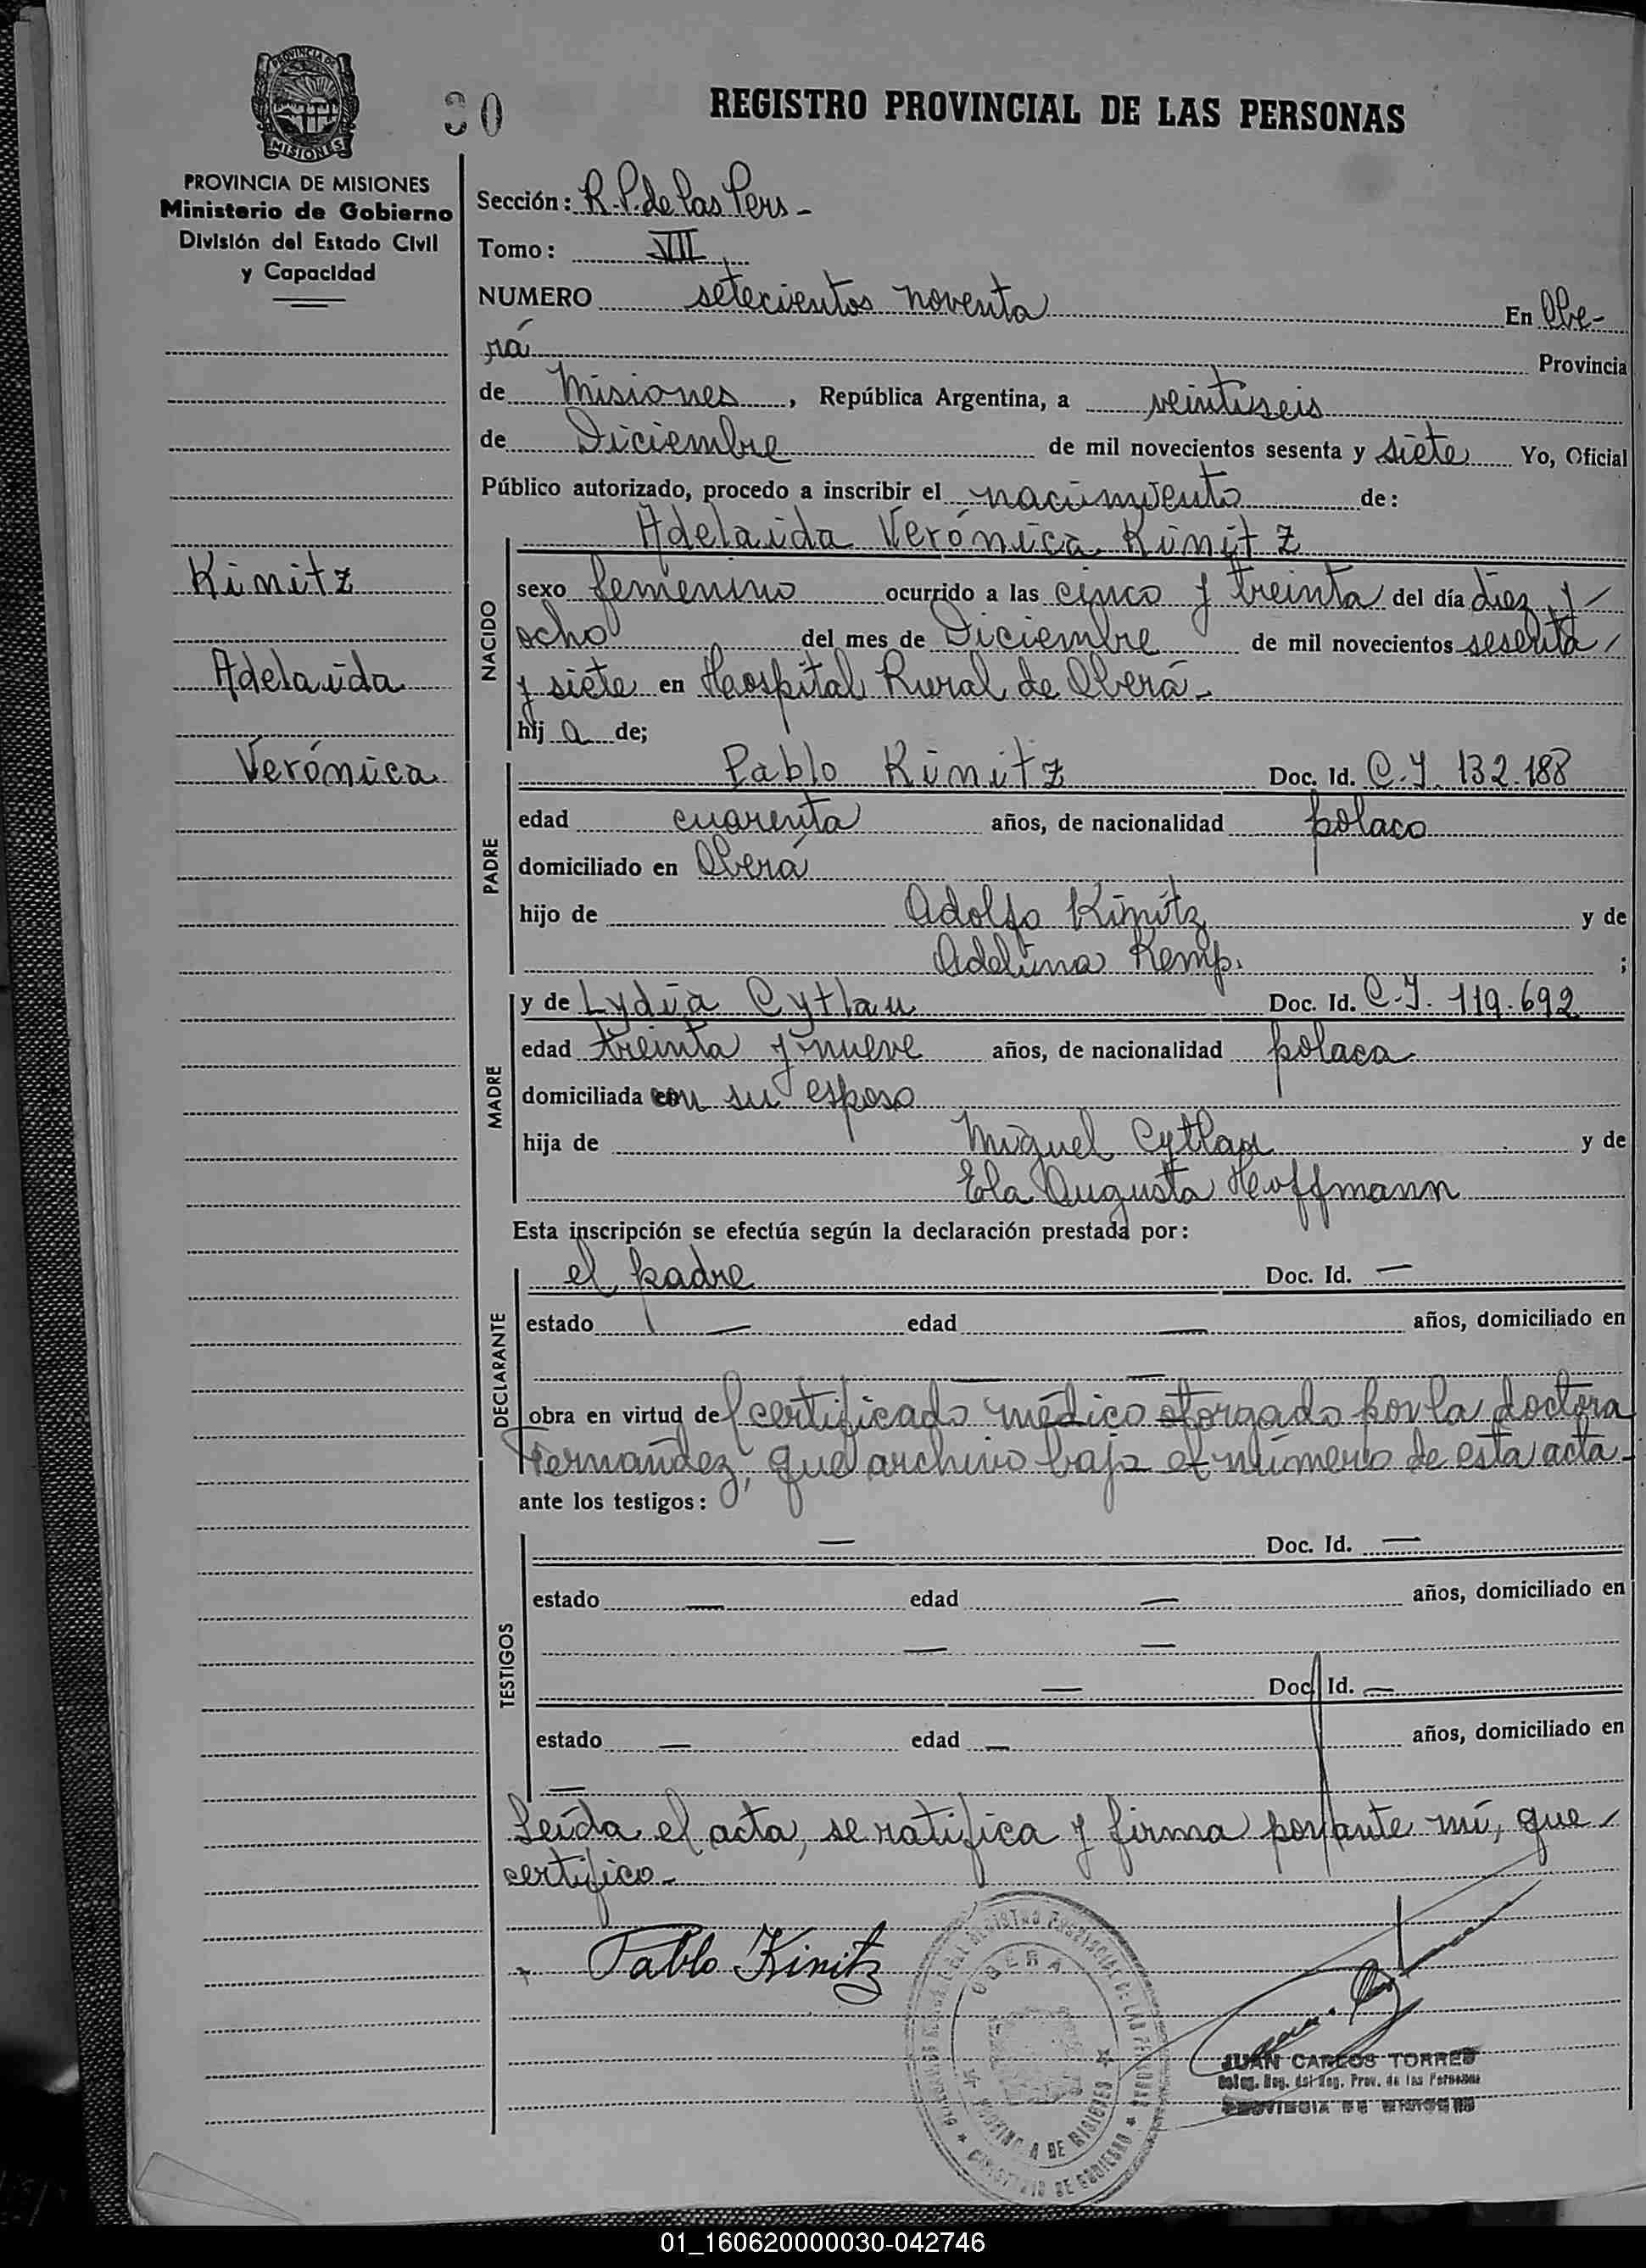 PROVINCIA DE
MISIONES
30
REGISTRO PROVINCIAL DE LAS PERSONAS
PROVINCIA DE MISIONES
Ministerio de Gobierno
División del Estado Civil
y Capacidad
Sección: R.P. de las Pers -
Tomo: VII
NUMERO setecientos noventa En Obe-
rá Provincia
de Misiones, República Argentina, a veintiseis
de Diciembre de mil novecientos sesenta y siete Yo, Oficial
Público autorizado, procedo a inscribir el nacimiento de:
Kinitz
Adelaida
Verónica
NACIDO
Adelaida Verónica Kinitz
sexo femenino ocurrido a las cinco y treinta del día diez y
ocho del mes de Diciembre de mil novecientos sesenta
y siete en Hospital Rural de Oberá -
hij a de;
PADRE
Pablo Kinitz Doc. Id. C.I. 132.188
edad cuarenta años, de nacionalidad polaco
domiciliado en Oberá
hijo de Adolfo Kinitz y de
Adelina Kemp. ;
MADRE
y de Lydia Cytlau Doc. Id. C.I. 119.692
edad treinta y nueve años, de nacionalidad polaca
domiciliada con su esposo
hija de Miguel Cytlau y de
Ela Augusta Hoffmann
Esta inscripción se efectúa según la declaración prestada por:
DECLARANTE
el padre Doc. Id. —
estado — edad — años, domiciliado en
— —
obra en virtud del certificado médico otorgado por la doctora
Fernandez, que archivo bajo el número de esta acta -
ante los testigos:
TESTIGOS
— Doc. Id. —
estado — edad — años, domiciliado en
— —
— Doc. Id. —
estado — edad — años, domiciliado en
—
Leída el acta, se ratifica y firma por ante mí, que
certifico -
Pablo Kinitz
OBERA
PROVINCIA DE MISIONES
MINISTERIO DE GOBIERNO
JUAN CARLOS TORRES
Deleg. Reg. del Reg. Prov. de las Personas
PROVINCIA DE MISIONES
01_160620000030-042746